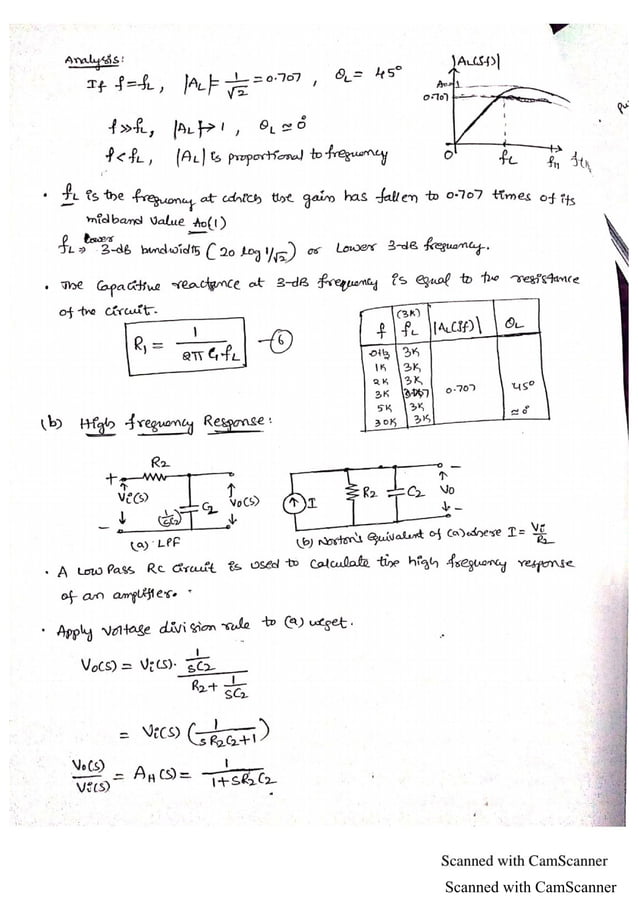 Analysis:
If f=fL, |AL|= 1/√2 = 0.707, θL = 45°
f≫fL, |AL|→1, θL ≃ 0°
f<fL, |AL| is proportional to frequency
|AL(Jf)|
0.707
0 fL fH
• fL is the frequency at which the gain has fallen to 0.707 times of its
midband value Ao(1)
fL ⇒ lower 3-dB bandwidth (20 log 1/√2) or Lower 3-dB frequency.
• The Capacitive reactance at 3-dB frequency is equal to the resistance
of the circuit.
R1 = 1/(2π C1 fL) —(6)
f (3K) fL |AL(Jf)| θL
0Hz 3K
1K 3K
2K 3K
3K 0.707 45°
5K 3K ≃0°
30K 3K
(b) High frequency Response:
R2
+ Vi(s) (1/SC2) C2 Vo(s)
(a) LPF
I R2 C2 Vo
(b) Norton's Equivalent of (a) where I = Vi/R2
• A Low Pass RC circuit is used to calculate the high frequency response
of an amplifier.
• Apply voltage division rule to (a) we get.
Vo(s) = Vi(s). (1/SC2)/(R2 + 1/SC2)
= Vi(s) (1/(s R2C2+1))
Vo(s)/Vi(s) = AH(s) = 1/(1+SR2C2)
Scanned with CamScanner
Scanned with CamScanner